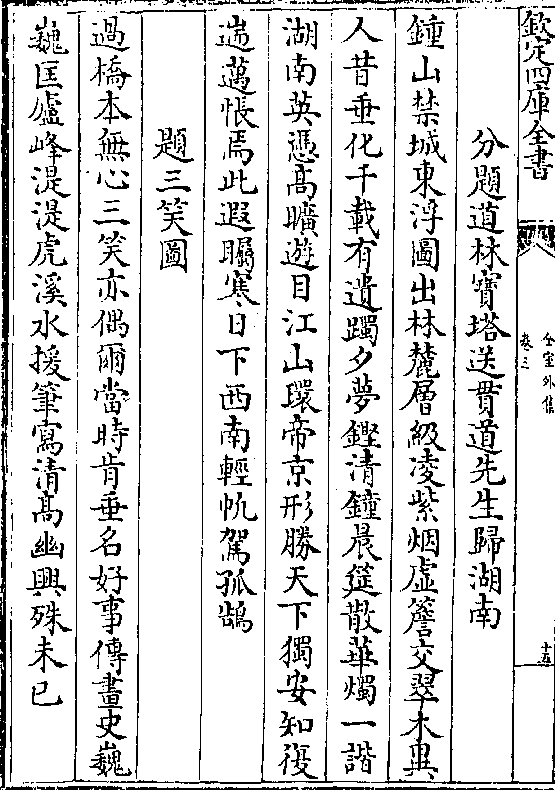 欽定四庫全書
全室外集
卷三
十五
分題道林寶塔送貫道先生歸湖南
鍾山禁城東浮圖出林麓層級凌紫烟虛簷交翠木異
人昔垂化千載有遺躅夕夢鏗清鐘晨筵散華燭一諧
湖南英憑高曠遊目江山環帝京形勝天下獨安知復
遄邁悵焉此遐矚寒日下西南輕帆駕孤鵠
題三笑圖
過橋本無心三笑亦偶爾當時肯垂名好事傳畫史巍
巍匡廬峰湜湜虎溪水援筆寫清高幽興殊未已